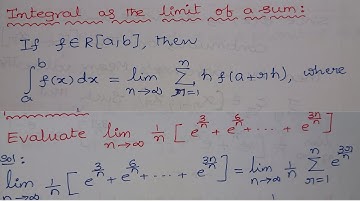 Integral as the limit of a sum:
If f ∈ R[a,b], then
∫_a^b f(x) dx = lim_{n→∞} ∑_{r=1}^{n} h f(a+rh), where
Evaluate lim_{n→∞} 1/n [ e^{3/n} + e^{6/n} + ⋯ + e^{3n/n} ]
Sol:
lim_{n→∞} 1/n [ e^{3/n} + e^{6/n} + ⋯ + e^{3n/n} ] = lim_{n→∞} 1/n ∑_{r=1}^{n} e^{3r/n}